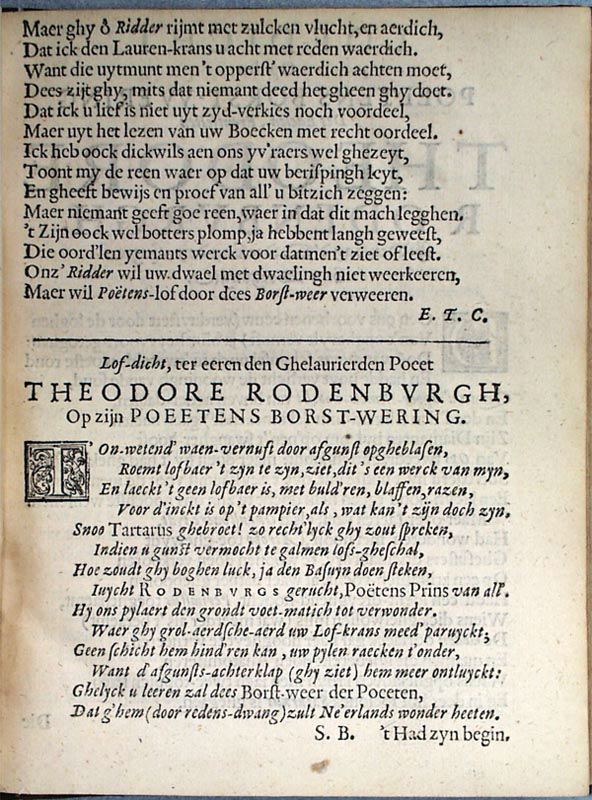 Maer ghy ô Ridder rijmt met zulcken vlucht, en aerdich,
Dat ick den Lauren-krans u acht met reden waerdich.
Want die uytmunt men 't opperst' waerdich achten moet,
Dees zijt ghy, mits dat niemant deed het gheen ghy doet.
Dat ick u lief is niet uyt zyd-verkies noch voordeel,
Maer uyt het lezen van uw Boecken met recht oordeel.
Ick heb oock dickwils aen ons yv'raers wel ghezeyt,
Toont my de reen waer op dat uw berispingh leyt,
En gheeft bewijs en proef van all' u bitzich zeggen:
Maer niemant geeft goe reen, waer in dat dit mach legghen.
't Zijn oock wel botters plomp, ja hebbent langh geweest,
Die oord'len yemants werck voor datmen't ziet of leest.
Onz' Ridder wil uw dwael met dwaelingh niet weerkeeren,
Maer wil Poëtens-lof door dees Borst-weer verweeren.
E. T. C.
Lof-dicht, ter eeren den Ghelaurierden Poeet
THEODORE RODENBVRGH,
Op zijn POEETENS BORST-WERING.
T' On-wetend' waen-vernuft door afgunst opgheblasen,
Roemt lofbaer 't zyn te zyn, ziet, dit 's een werck van myn,
En laeckt 't geen lofbaer is, met buld'ren, blaffen, razen,
Voor d'inckt is op 't pampier, als, wat kan't zijn doch zyn,
Snoo Tartarus ghebroet! zo recht'lyck ghy zout spreken,
Indien u gunst vermocht te galmen lofs-gheschal,
Hoe zoudt ghy boghen luck, ja den Basuyn doen steken,
Iuycht RODENBVRGS gerucht, Poëtens Prins van all'.
Hy ons pylaert den grondt voet-matich tot verwonder.
Waer ghy grol-aerdsche-aerd uw Lof-krans meed' paruyckt;
Geen schicht hem hind'ren kan, uw pylen raecken t'onder,
Want d'afgunsts-achterklap (ghy ziet) hem meer ontluyckt:
Ghelyck u leeren zal dees Borst-weer der Poeeten,
Dat g'hem (door redens-dwang) zult Ne'erlands wonder heeten.
S. B. 't Had zyn begin.